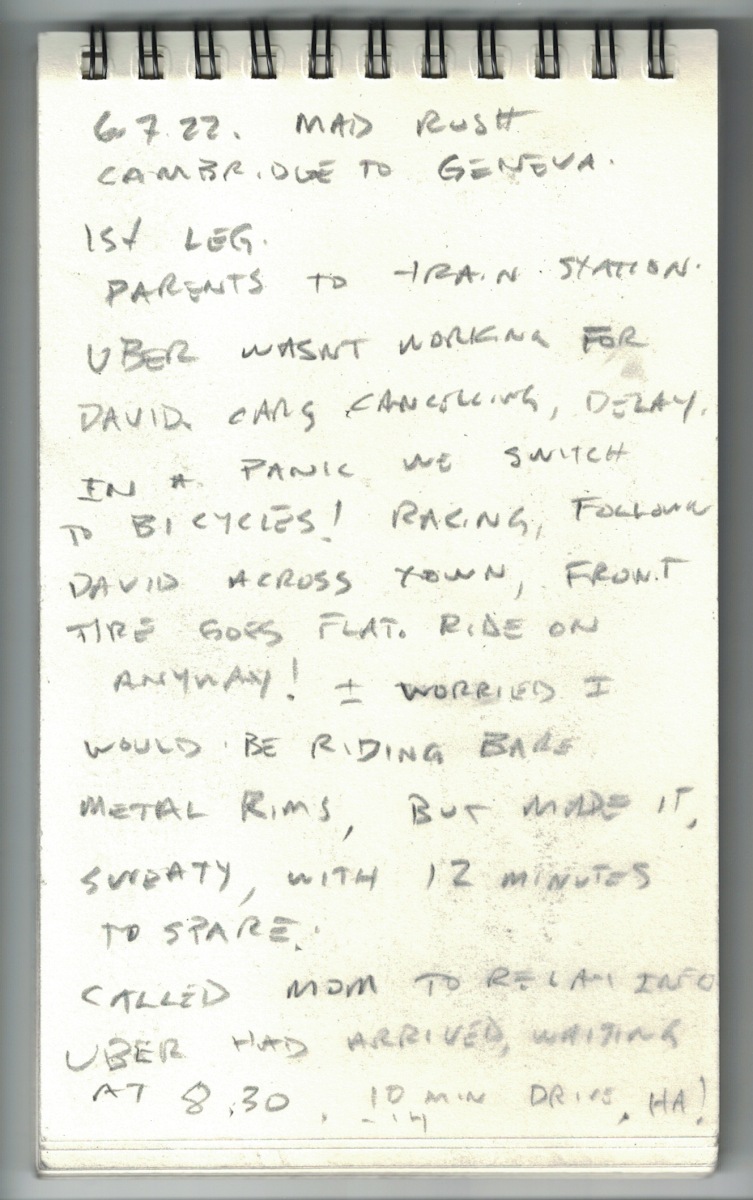 6.7.22. MAD RUSH
CAMBRIDGE TO GENEVA.
1St LEG.
PARENTS TO TRAIN STATION.
UBER WASNT WORKING FOR
DAVID. CARS CANCELLING, DELAY.
IN A PANIC WE SWITCH
TO BICYCLES! RACING, FOLLOWING
DAVID ACROSS TOWN, FRONT
TIRE GOES FLAT. RIDE ON
ANYWAY! I WORRIED I
WOULD BE RIDING BARE
METAL RIMS, BUT MADE IT,
SWEATY, WITH 12 MINUTES
TO SPARE.
CALLED MOM TO RELAY INFO
UBER HAD ARRIVED, WAITING
AT 8.30. 10 MIN DRIVE. HA!